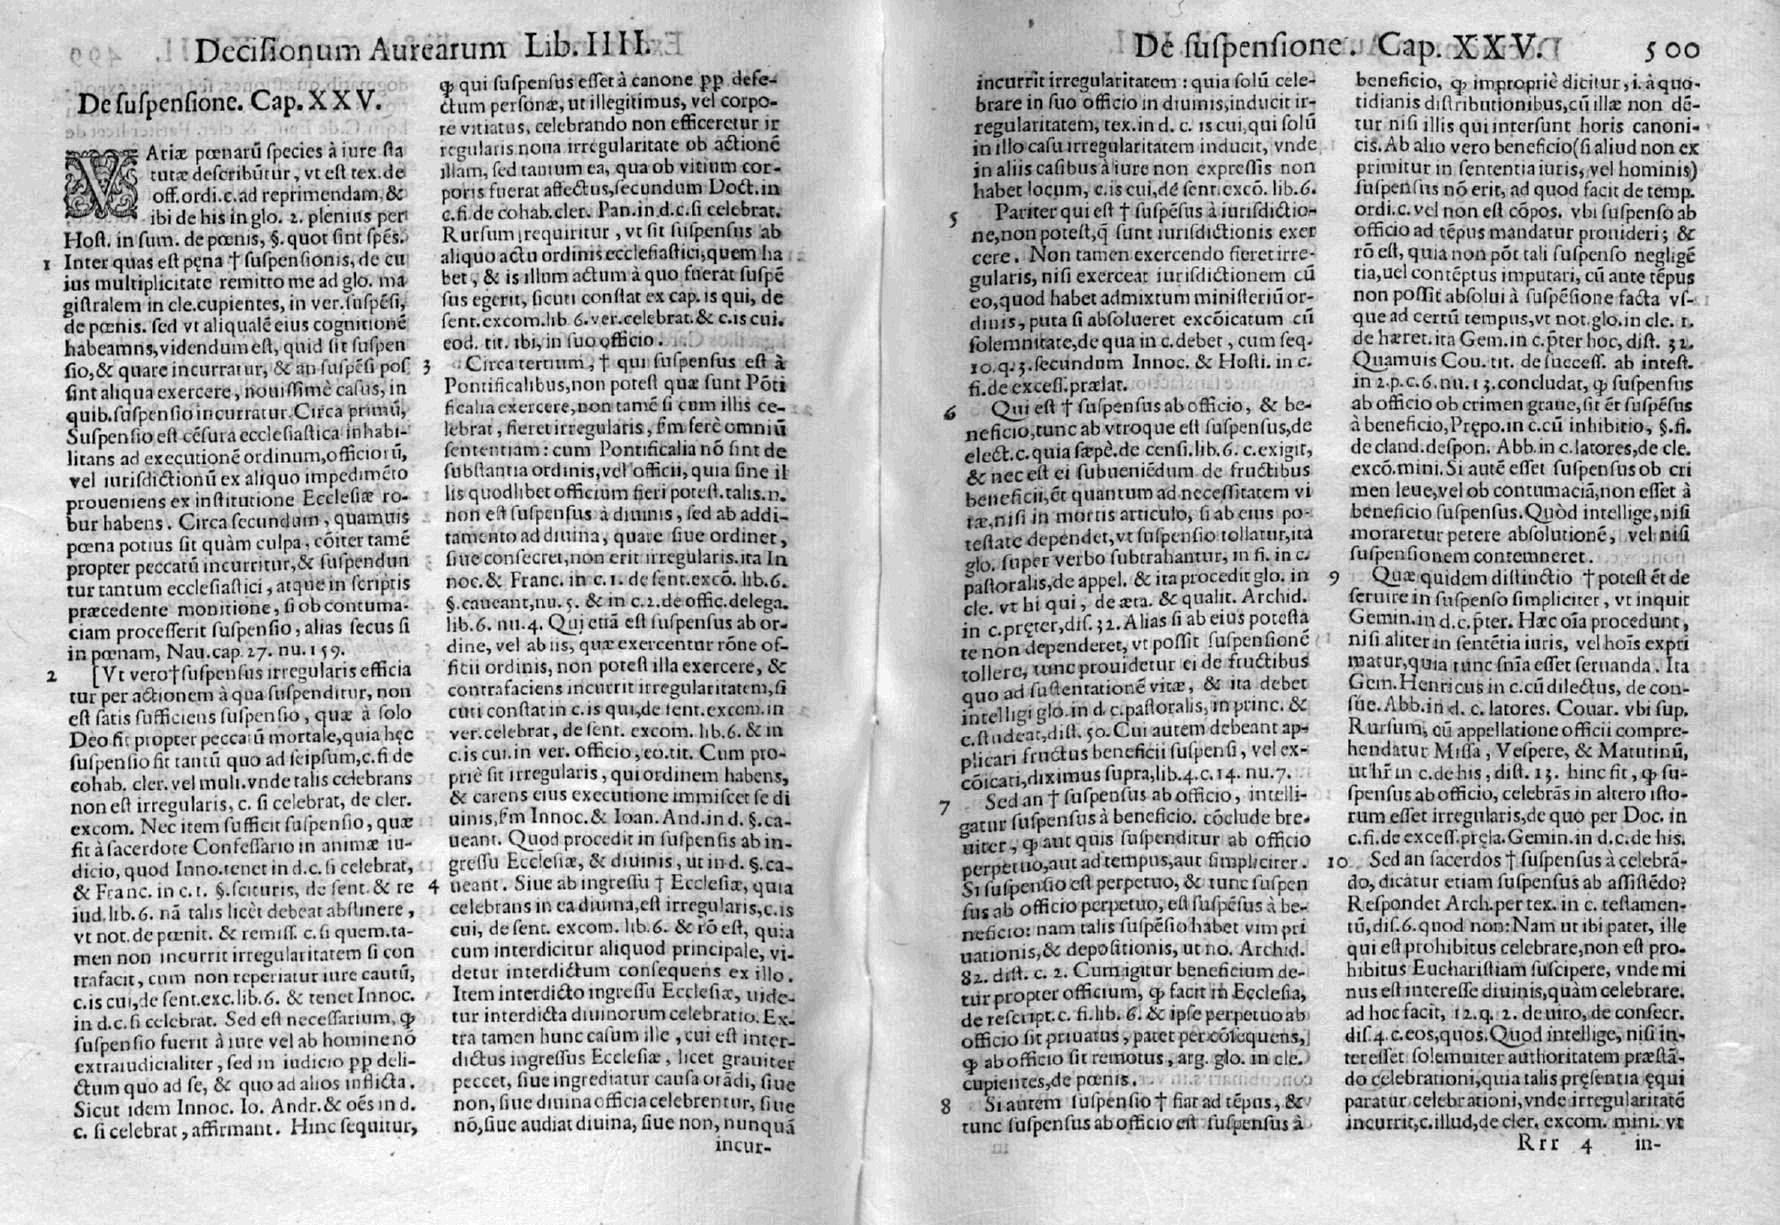 Decisionum Aurearum Lib. IIII.
De suspensione. Cap. XXV.
VAriæ pœnarũ species à iure sta
tutæ describũtur, vt est tex. de
off. ordi. c. ad reprimendam, &
ibi de his in glo. 2. plenius per
Host. in sum. de pœnis, §. quot sint spẽs.
1 Inter quas est pęna † suspensionis, de cu
ius multiplicitate remitto me ad glo. ma
gistralem in cle. cupientes, in ver. suspẽsi,
de pœnis. sed vt aliqualẽ eius cognitionẽ
habeamns, videndum est, quid sit suspen
sio, & quare incurratur, & an suspẽsi pos
sint aliqua exercere, nouissimè casus, in
quib. suspensio incurratur. Circa primũ,
Suspensio est cẽsura ecclesiastica inhabi-
litans ad executionẽ ordinum, officiorũ,
vel iurisdictionũ ex aliquo impedimẽto
proueniens ex institutione Ecclesiæ ro-
bur habens. Circa secundum, quamuis
pœna potius sit quàm culpa, cõiter tamẽ
propter peccatũ incurritur, & suspendun
tur tantum ecclesiastici, atque in scriptis
præcedente monitione, si ob contuma-
ciam processerit suspensio, alias secus si
in pœnam, Nau. cap. 27. nu. 159.
2 [Vt vero † suspensus irregularis efficia
tur per actionem à qua suspenditur, non
est satis sufficiens suspensio, quæ à solo
Deo fit propter peccatũ mortale, quia hęc
suspensio fit tantũ quo ad seipsum, c. fi de
cohab. cler. vel muli. vnde talis celebrans
non est irregularis, c. si celebrat, de cler.
excom. Nec item sufficit suspensio, quæ
fit à sacerdote Confessario in animæ iu-
dicio, quod Inno. tenet in d. c. si celebrat,
& Franc. in c. 1. §. scituris, de sent. & re
iud. lib. 6. nã talis licèt debeat abstinere,
vt not. de pœnit. & remiss. c. si quem. ta-
men non incurrit irregularitatem si con
trafacit, cum non reperiatur iure cautũ,
c. is cui, de sent. exc. lib. 6. & tenet Innoc.
in d. c. si celebrat. Sed est necessarium, ꝙ
suspensio fuerit à iure vel ab homine nõ
extraiudicialiter, sed in iudicio pp deli-
ctum quo ad se, & quo ad alios inflicta.
Sicut idem Innoc. Io. Andr. & oẽs in d.
c. si celebrat, affirmant. Hinc sequitur,
ꝙ qui suspensus esset à canone pp defe-
ctum personæ, ut illegitimus, vel corpo-
re vitiatus, celebrando non efficeretur ir
regularis noua irregularitate ob actionẽ
illam, sed tantum ea, qua ob vitium cor-
poris fuerat affectus, secundum Doct. in
c. fi. de cohab. cler. Pan. in d. c. si celebrat.
Rursum requiritur, vt sit suspensus ab
aliquo actu ordinis ecclesiastici, quem ha
bet, & is illum actum à quo fuerat suspẽ
sus egerit, sicuti constat ex cap. is qui, de
sent. excom. lib 6. ver. celebrat. & c. is cui.
eod. tit. ibi, in suo officio.
3 Circa tertium, † qui suspensus est à
Pontificalibus, non potest quæ sunt Põti
ficalia exercere, non tamẽ si cum illis ce-
lebrat, fieret irregularis, fm ferè omniũ
sententiam: cum Pontificalia nõ sint de
substantia ordinis, vel officii, quia sine il
lis quodlibet officium fieri potest. talis. n.
non est suspensus à diuinis, sed ab addi-
tamento ad diuina, quare siue ordinet,
siue consecret, non erit irregularis. ita In
noc. & Franc. in c. 1. de sent. excõ. lib. 6.
§. caueant, nu. 5. & in c. 2. de offic. delega.
lib. 6. nu. 4. Qui etiã est suspensus ab or-
dine, vel ab iis, quæ exercentur rõne of-
ficii ordinis, non potest illa exercere, &
contrafaciens incurrit irregularitatem, si
cuti constat in c. is qui, de sent. excom. in
ver. celebrat, de sent. excom. lib. 6. & in
c. is cui. in ver. officio, eo. tit. Cum pro-
priè sit irregularis, qui ordinem habens,
& carens eius executione immiscet se di
uinis, fm Innoc. & Ioan. And. in d. §. ca-
ueant. Quod procedit in suspensis ab in-
gressu Ecclesiæ, & diuinis, ut in d. §. ca-
4 ueant. Siue ab ingressu † Ecclesiæ, quia
celebrans in ea diuina, est irregularis, c. is
cui, de sent. excom. lib. 6. & rõ est, quia
cum interdicitur aliquod principale, vi-
detur interdictum consequens ex illo.
Item interdicto ingressu Ecclesiæ, uide-
tur interdicta diuinorum celebratio. Ex-
tra tamen hunc casum ille, cui est inter-
dictus ingressus Ecclesiæ, licet grauiter
peccet, siue ingrediatur causa orãdi, siue
non, siue diuina officia celebrentur, siue
nõ, siue audiat diuina, siue non, nunquã
incur-
De suspensione. Cap. XXV. 500
incurrit irregularitatem: quia solũ cele-
brare in suo officio in diuinis, inducit ir-
regularitatem, tex. in d. c. is cui, qui solũ
in illo casu irregularitatem inducit, vnde
in aliis casibus à iure non expressis non
habet locum, c. is cui, de sent. excõ. lib. 6.
5 Pariter qui est † suspẽsus à iurisdictio-
ne, non potest, q̃ sunt iurisdictionis exer
cere. Non tamen exercendo fieret irre-
gularis, nisi exerceat iurisdictionem cũ
eo, quod habet admixtum ministeriũ or-
dinis, puta si absolueret excõicatum cũ
solemnitate, de qua in c. debet, cum seq.
10. q. 3. secundum Innoc. & Hosti. in c.
fi. de excess. prælat.
6 Qui est † suspensus ab officio, & be-
neficio, tunc ab vtroque est suspensus, de
elect. c. quia sæpè. de censi. lib. 6. c. exigit,
& nec est ei subueniẽdum de fructibus
beneficii, ẽt quantum ad necessitatem vi
tæ, nisi in mortis articulo, si ab eius po-
testate dependet, vt suspensio tollatur, ita
glo. super verbo subtrahantur, in fi. in c.
pastoralis, de appel. & ita procedit glo. in
cle. vt hi qui, de æta. & qualit. Archid.
in c. pręter, dis. 32. Alias si ab eius potesta
te non dependeret, vt possit suspensionẽ
tollere, tunc prouidetur ei de fructibus
quo ad sustentationẽ vitæ, & ita debet
intelligi glo. in d. c. pastoralis, in princ. &
c. studeat, dist. 50. Cui autem debeant ap-
plicari fructus beneficii suspensi, vel ex-
cõicati, diximus supra, lib. 4. c. 14. nu. 7.
7 Sed an † suspensus ab officio, intelli-
gatur suspensus à beneficio. cõclude bre-
uiter, ꝙ aut quis suspenditur ab officio
perpetuo, aut ad tempus, aut simpliciter.
Si suspensio est perpetuo, & tunc suspen
sus ab officio perpetuo, est suspẽsus à be-
neficio: nam talis suspẽsio habet vim pri
uationis, & depositionis, ut no. Archid.
82. dist. c. 2. Cum igitur beneficium de-
tur propter officium, ꝙ facit in Ecclesia,
de rescript. c. fi. lib. 6. & ipse perpetuo ab
officio sit priuatus, patet per cõsequens,
ꝙ ab officio sit remotus, arg. glo. in cle.
cupientes, de pœnis.
8 Si autem suspensio † fiat ad tẽpus, &
tunc suspensus ab officio est suspensus à
beneficio, ꝙ impropriè dicitur, i. à quo-
tidianis distributionibus, cũ illæ non dẽ-
tur nisi illis qui intersunt horis canoni-
cis. Ab alio vero beneficio (si aliud non ex
primitur in sententia iuris, vel hominis)
suspensus nõ erit, ad quod facit de temp.
ordi. c. vel non est cõpos. vbi suspenso ab
officio ad tẽpus mandatur prouideri; &
rõ est, quia non põt tali suspenso negligẽ
tia, uel contẽptus imputari, cũ ante tẽpus
non possit absolui à suspẽsione facta vs-
que ad certũ tempus, vt not. glo. in cle. 1.
de hæret. ita Gem. in c. p̃ter hoc, dist. 32.
Quamuis Cou. tit. de success. ab intest.
in 2. p. c. 6. nu. 13. concludat, ꝙ suspensus
ab officio ob crimen graue, sit ẽt suspẽsus
à beneficio, Prępo. in c. cũ inhibitio, §. fi.
de cland. despon. Abb. in c. latores, de cle.
excõ. mini. Si autẽ esset suspensus ob cri
men leue, vel ob contumaciã, non esset à
beneficio suspensus. Quòd intellige, nisi
moraretur petere absolutionẽ, vel nisi
suspensionem contemneret.
9 Quæ quidem distinctio † potest ẽt de
seruire in suspenso simpliciter, vt inquit
Gemin. in d. c. p̃ter. Hæc oĩa procedunt,
nisi aliter in sentẽtia iuris, vel hoĩs expri
matur, quia tunc sñia esset seruanda. Ita
Gem. Henricus in c. cũ dilectus, de con-
sue. Abb. in d. c. latores. Couar. vbi sup.
Rursum, cũ appellatione officii compre-
hendatur Missa, Vespere, & Matutinũ,
ut hr̃ in c. de his, dist. 13. hinc fit, ꝙ su-
spensus ab officio, celebrãs in altero isto-
rum esset irregularis, de quo per Doc. in
c. fi. de excess. pręla. Gemin. in d. c. de his.
10 Sed an sacerdos † suspensus à celebrã-
do, dicatur etiam suspensus ab assistẽdo?
Respondet Arch. per tex. in c. testamen-
tũ, dis. 6. quod non: Nam ut ibi patet, ille
qui est prohibitus celebrare, non est pro-
hibitus Eucharistiam suscipere, vnde mi
nus est interesse diuinis, quàm celebrare.
ad hoc facit, 12. q. 2. de uiro, de consecr.
dis. 4. c. eos, quos. Quod intellige, nisi in-
teresset solemniter authoritatem præstã-
do celebrationi, quia talis pręsentia ęqui
paratur celebrationi, vnde irregularitatẽ
incurrit, c. illud, de cler. excom. mini. vt
Rrr 4 in-